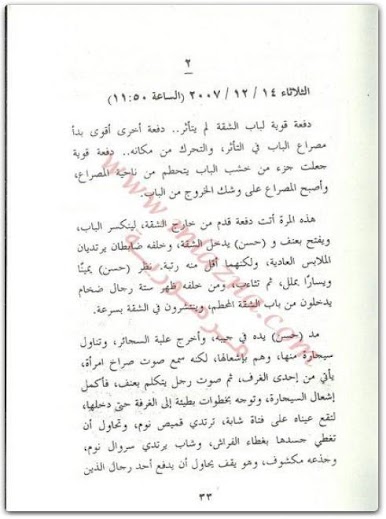 ٢
الثلاثاء ١٤ / ١٢ / ٢٠٠٧ (الساعة ١١:٥٠)
دفعة قوية لباب الشقة لم يتأثر.. دفعة أخرى أقوى بدأ
مصراع الباب في التأثر، والتحرك من مكانه.. دفعة قوية
جعلت جزء من خشب الباب يتحطم من ناحية المصراع،
وأصبح المصراع على وشك الخروج من الباب.
هذه المرة أتت دفعة قدم من خارج الشقة، لينكسر الباب،
ويفتح بعنف و (حسن) يدخل الشقة، وخلفه ضابطان يرتديان
الملابس العادية، ولكنهما أقل منه رتبة. نظر (حسن) يمينًا
ويسارًا بملل، ثم تثاءب، ومن خلفه ظهر ستة رجال ضخام
يدخلون من باب الشقة المحطم، وينتشرون في الشقة بسرعة.
مد (حسن) يده في جيبه، وأخرج علبة السجائر، وتناول
سيجارة منها، وهم بإشعالها، لكنه سمع صوت صراخ امرأة،
يأتي من إحدى الغرف، ثم صوت رجل يتكلم بعنف، فأكمل
إشعال السيجارة، وتوجه بخطوات بطيئة إلى الغرفة حتى دخلها،
لتقع عيناه على فتاة شابة، ترتدي قميص نوم، وتحاول أن
تغطي جسدها بغطاء الفراش، وشاب يرتدي سروال نوم،
وجذعه مكشوف، وهو يقف يحاول أن يدفع أحد رجال الذين
٣٣